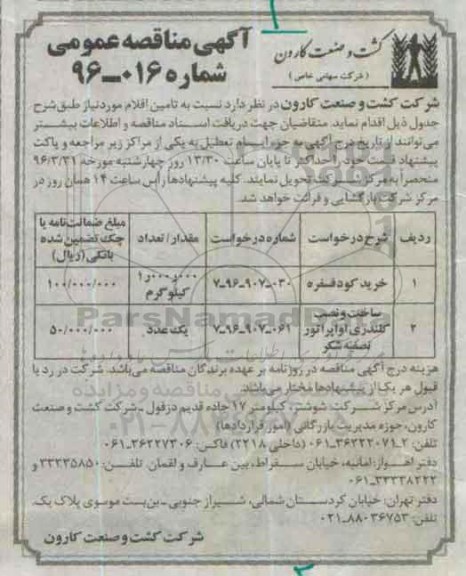 کشت و صنعت کارون
( شرکت سهامی خاص )
آگهی مناقصه عمومی
شماره ۰۱۶-۹۶
شرکت کشت و صنعت کارون در نظر دارد نسبت به تامین اقلام موردنیاز طبق شرح
جدول ذیل اقدام نماید. متقاضیان جهت دریافت اسناد مناقصه و اطلاعات بیشتر
می‌توانند از تاریخ درج آگهی به جز ایام تعطیل به یکی از مراکز زیر مراجعه و پاکت
پیشنهاد قیمت خود را حداکثر تا پایان ساعت ۱۳/۳۰ روز چهارشنبه مورخه ۹۶/۳/۳۱
منحصراً به مرکز شرکت تحویل نمایند. کلیه پیشنهادها رأس ساعت ۱۴ همان روز در
مرکز شرکت بازگشایی و قرائت خواهد شد.
ردیف شرح درخواست شماره درخواست مقدار/ تعداد مبلغ ضمانت‌نامه یا چک تضمین شده بانکی (ریال)
۱ خرید کود فسفره ۰۳۰-۹۰۷-۹۶-۷ ۱٫۰۰۰٫۰۰۰ کیلوگرم ۱۰۰/۰۰۰/۰۰۰
۲ ساخت و نصب گلندری اواپراتور تصفیه شکر ۰۶۱-۹۰۷-۹۶-۷ یک عدد ۵۰/۰۰۰/۰۰۰
هزینه درج آگهی مناقصه در روزنامه بر عهده برندگان مناقصه می‌باشد. شرکت در رد یا
قبول هر یک از پیشنهادها مختار می‌باشد.
آدرس مرکز شرکت: شوشتر، کیلومتر ۱۷ جاده قدیم دزفول - شرکت کشت و صنعت
کارون، حوزه مدیریت بازرگانی (امور قراردادها)
تلفن: ۲-۳۶۲۲۲۰۷۱-۰۶۱ (داخلی ۲۲۱۸) فاکس: ۳۶۲۲۷۳۰۶-۰۶۱
دفتر اهواز: امانیه، خیابان سقراط، بین عارف و لقمان. تلفن: ۳۳۲۳۵۸۵۰ و
۳۳۳۳۸۲۲۲-۰۶۱
دفتر تهران: خیابان کردستان شمالی، شیراز جنوبی - بن‌بست موسوی پلاک یک.
تلفن: ۸۸۰۳۶۷۵۳-۰۲۱
شرکت کشت و صنعت کارون
ParsNamadData